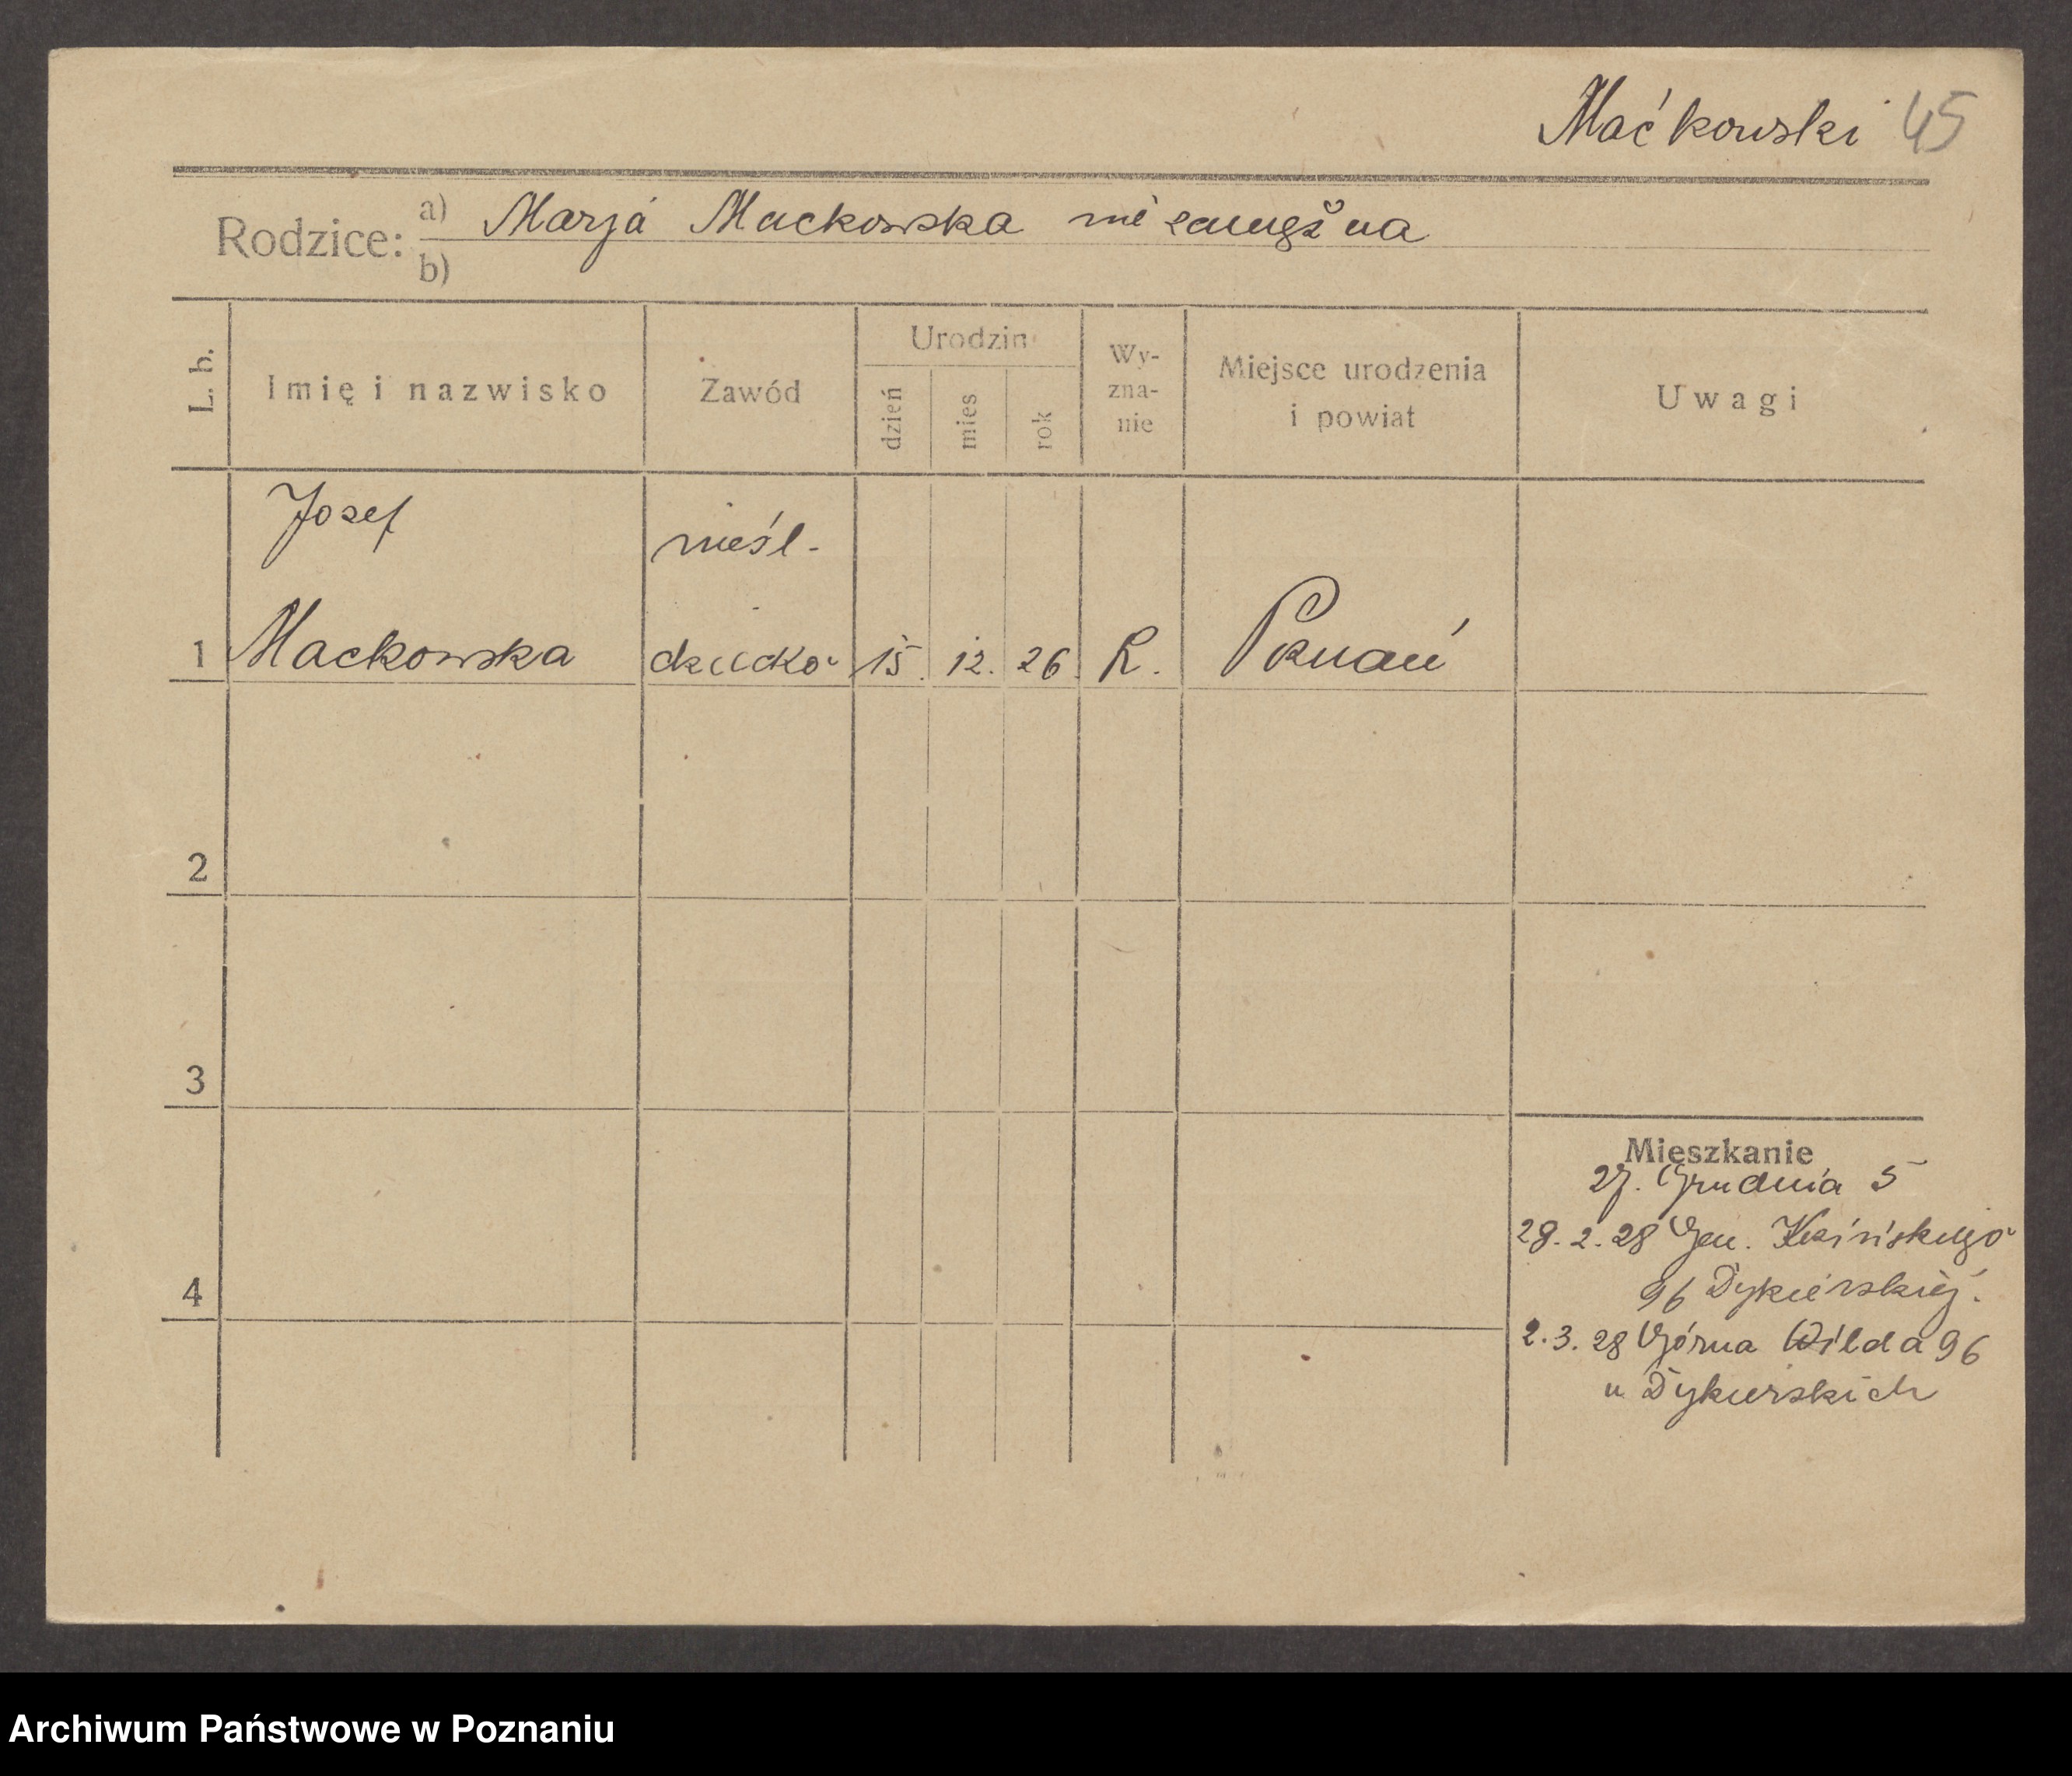 Maćkowski 45
Rodzice: a) Marja Mackowska nie zamężna
b)
L. b.
Imię i nazwisko
Zawód
Urodzin
dzień
mies
rok
Wy-
zna-
nie
Miejsce urodzenia
i powiat
Uwagi
Josef nieśl.
1 Mackowska dziecko 15. 12. 26. R. Poznań
2
3
4
Mieszkanie
27. Grudnia 5
28. 2. 28 Gen.
96 Dykierskiej.
2. 3. 28 Górna Wilda 96
u Dykierskich
Archiwum Państwowe w Poznaniu